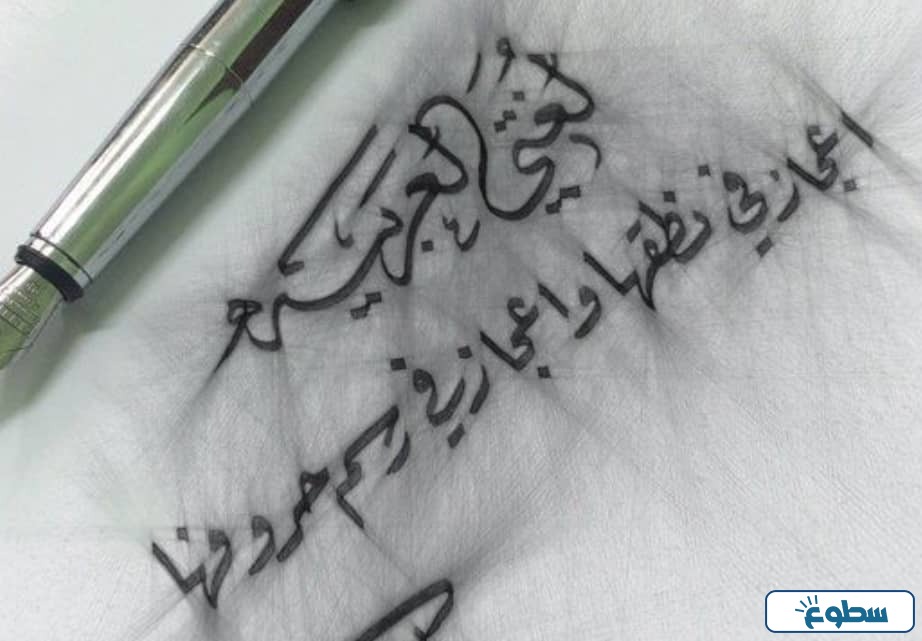 لغتي العربية
اعجاز في نطقها واعجاز في رسم حروفها
سطوع